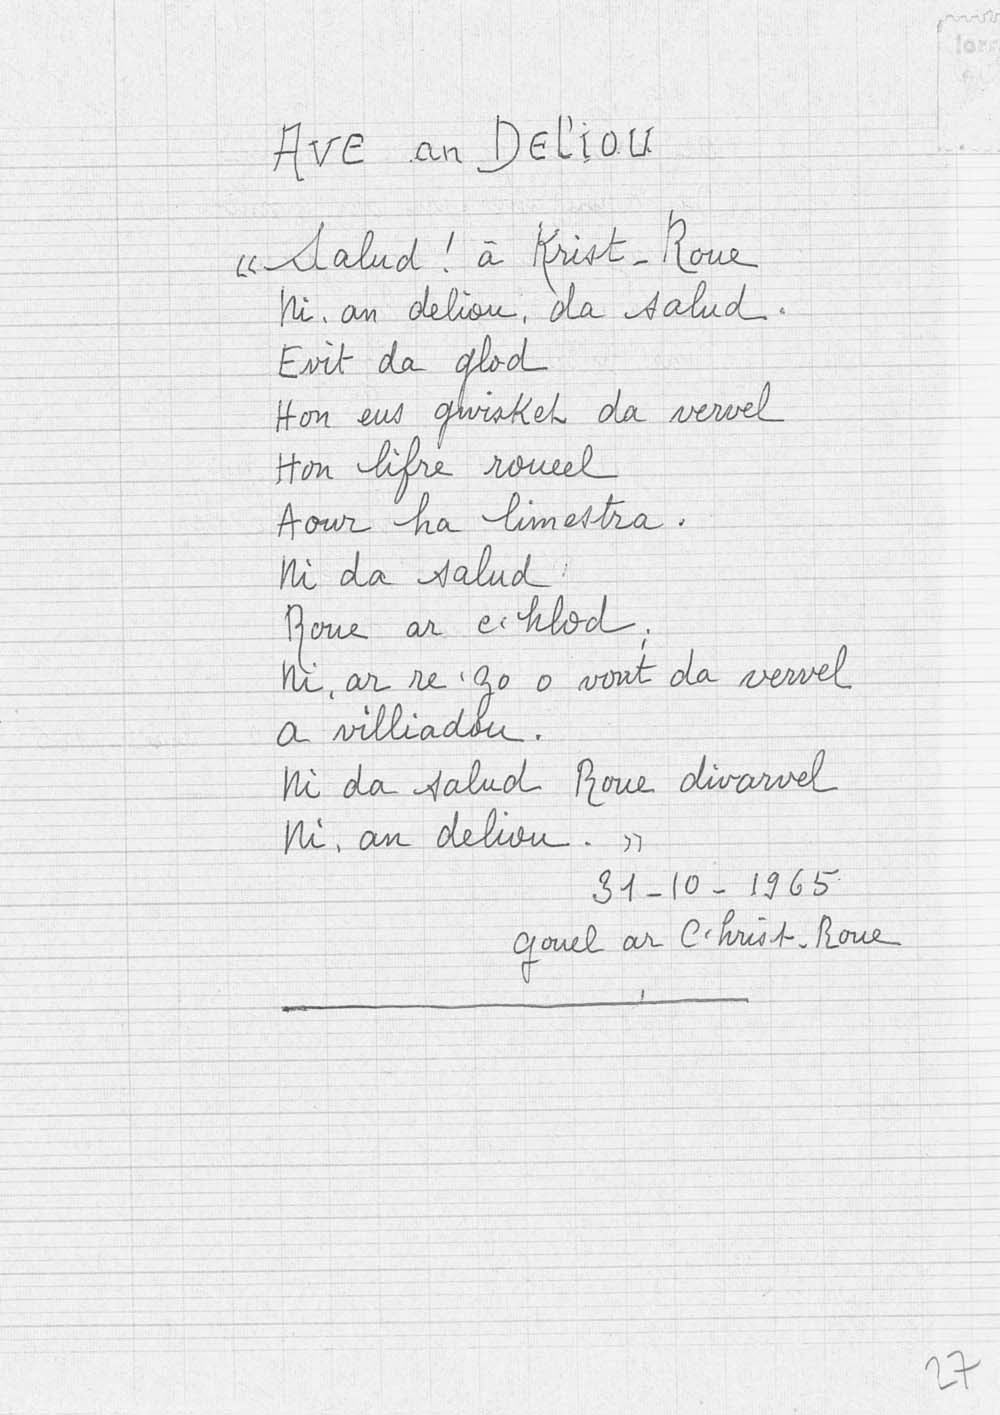 AVE an DELIOU
« Salud ! ā Krist-Roue
Ni, an deliou, da salud.
Evit da glod
Hon eus gwisket da vervel
Hon lifre roueel
Aour ha limestra.
Ni da salud
Roue ar c'hlod,
Ni, ar re 'zo o vont da vervel
a villiadou.
Ni da salud Roue divarvel
Ni, an deliou. »
31-10-1965
gouel ar C'hrist-Roue
27